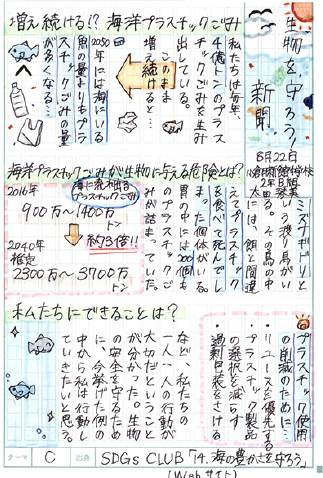 生物を守ろう!
新聞
8月22日
増え続ける!? 海洋プラスチックごみ
私たちは毎年
4億トンのプラス
チックごみを生み
出している。
このまま
増え続けると…
2050年には海にいる
魚の量よりもプラ
スチックごみの量
が多くなる…
海洋プラスチックごみが生物に与える危険とは?
ミズナギドリと
いう渡り鳥がい
る。その鳥の中
には、餌と間違
えてプラスチック
を食べて死んでし
まった個体がいる。
胃の中には200個も
みが詰まっていた。
海に流れ出る
プラスチックごみ
2016年
900万〜1400万
トン
約3倍!!
2040年
推定
2300万〜3700万
トン
私たちにできることは?
プラスチック使用
の削減のために…
・リユースを優先する
・プラスチック製品
の選択を減らす
・過剰包装をさける
など、私たちの
一人一人の行動が
大切だということ
が分かった。生物
の安全を守るため
に、今挙げた例の
中から私は行動し
ていきたいと思う。
テーマ
C
出典
SDGs CLUB「14.海の豊かさを守ろう」
(Webサイト)